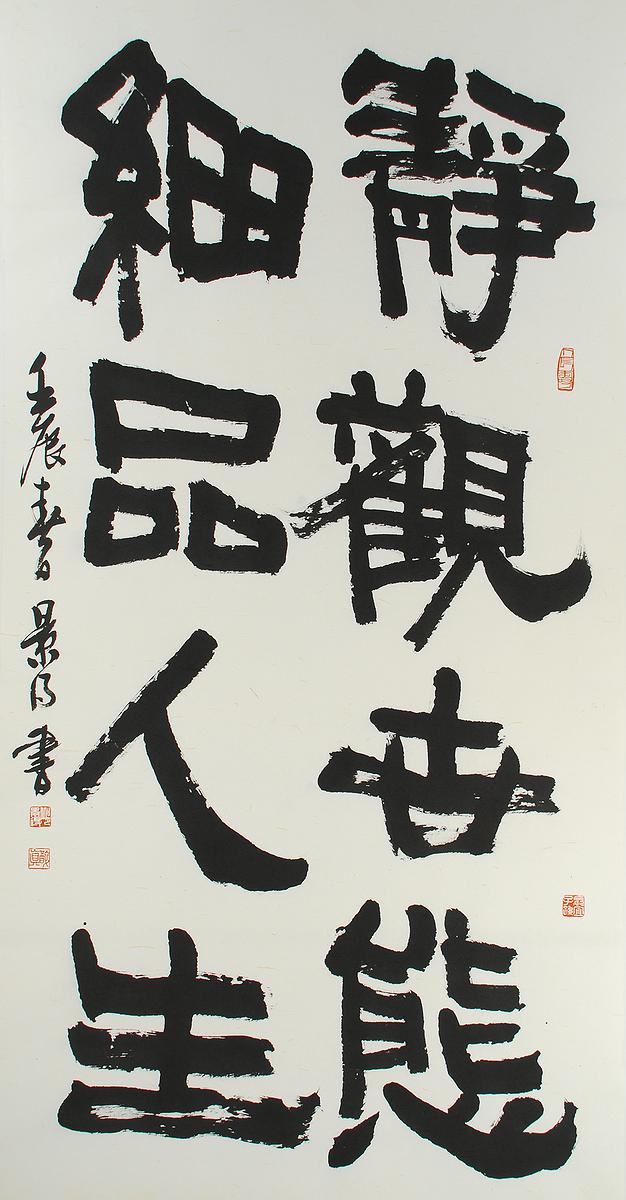 靜觀世態
細品人生
壬辰春月景得書